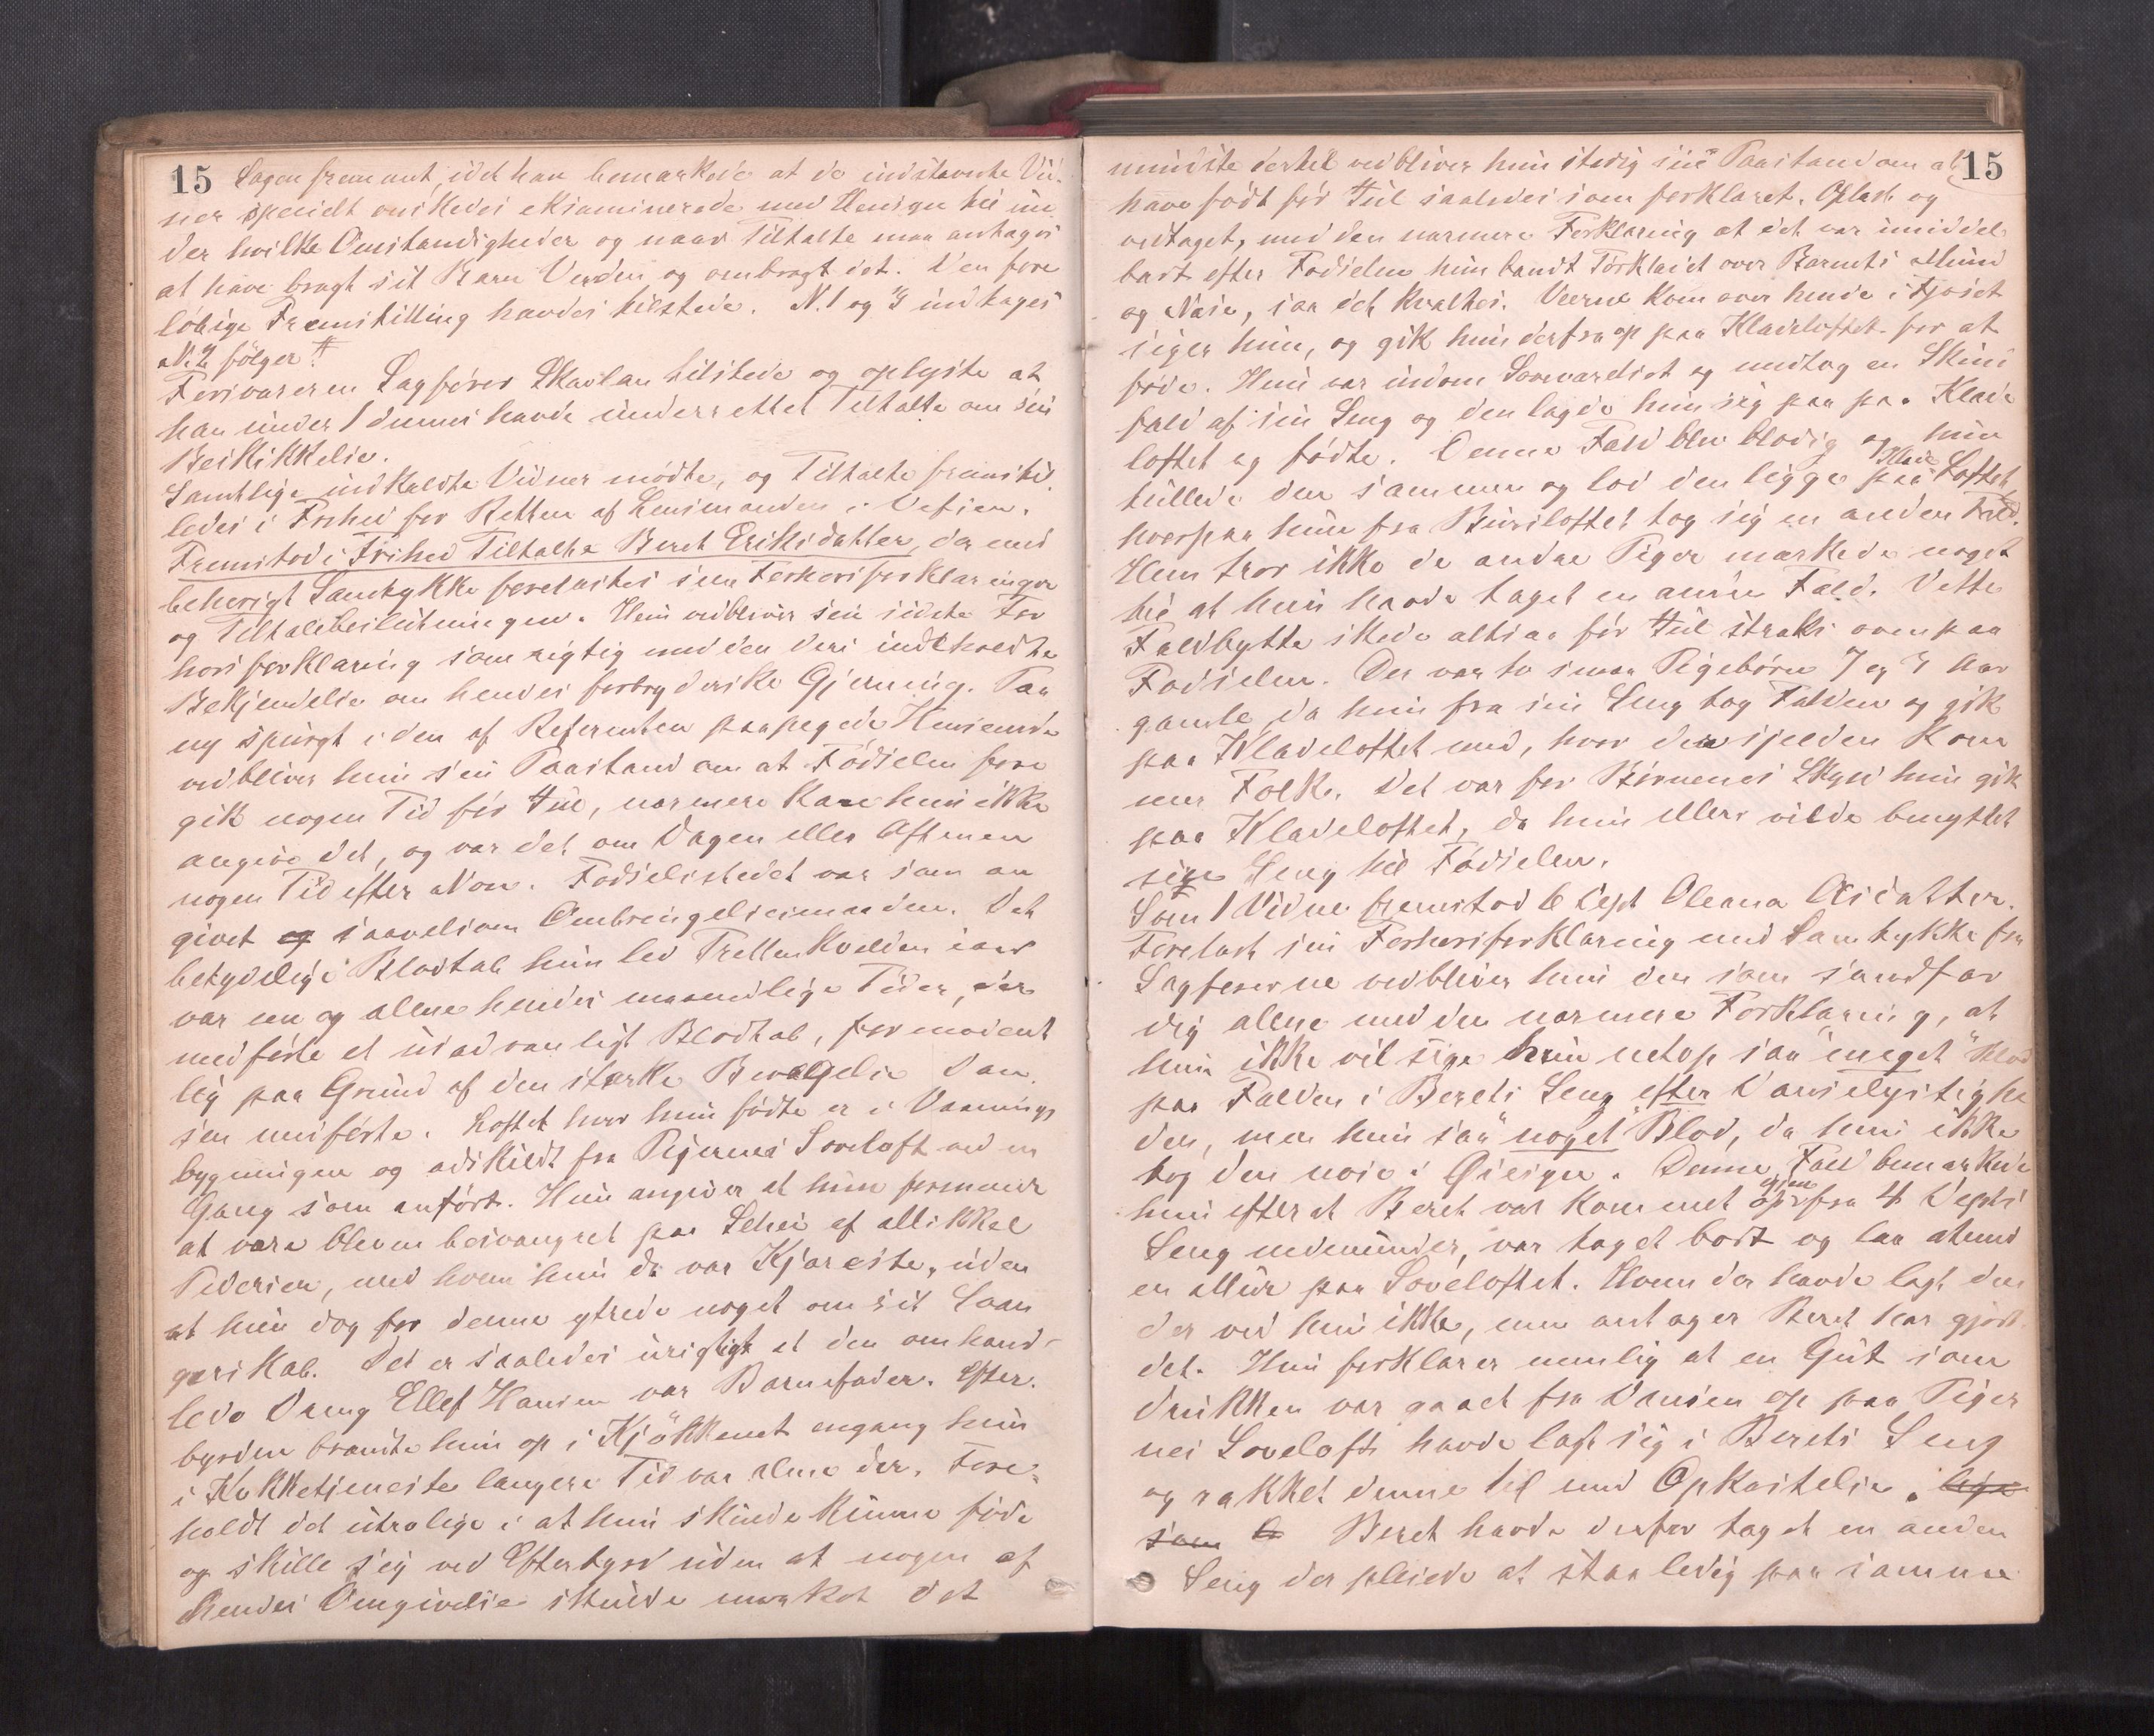 15
Sagen fremant, idet han bemærkede at de indstævnte Vid-
ner specielt ønskedes eksaminerede med Hensyn til un
der hvilke Omstændigheder og naar Tiltalte maa antages
at have bragt sit Barn Verden og ombragt det. Den fore
løbige Fremstilling havdes tilstede. N. 1 og 3 indtages
N. 2 følger #
Forsvareren Sagfører Skavlan tilstede og oplyste at
han under 1 dennes havde underrettet Tiltalte om sin
Beskikkelse.
Samtlige indkaldte Vidner mødte, og Tiltalte fremstil-
ledes i Frihed for Retten af Lensmanden i Vefsen.
Fremstod i Frihed Tiltalte Beret Eriksdatter, der med
behørigt Samtykke forelæstes sine Forhørsforklaringer
og Tiltalebeslutningen. Hun vedbliver sin sidste For
hørsforklaring som rigtig med den deri indeholdte
Bekjendelse om hendes forbryderske Gjerning. Paa
ny spurgt i den af Referenten paapegede Henseende
vedbliver hun sin Paastand om at Fødselen fore
gik nogen Tid før Jul, nærmere kan hun ikke
angive det, og var det om Dagen eller Aftenen
nogen Tid efter Non. Fødselsstedet var som an
givet og saavelsom Ombringelsesmaaden. Det
betydelige Blodtab hun led Trettenkvelden iaar
var en og alene hendes maanedlige Tider, der
medførte et usædvanligt Blodtab, formodent
lig paa Grund af den stærke Bevægelse Dan
sen medførte. Loftet hvor hun fødte er i Vaanings
bygningen og adskildt fra Pigernes Soveloft ved en
Gang som anført. Hun angiver at hun formener
at være bleven besvangret paa af Mikkel
Pedersen, med hvem hun da var Kjæreste, uden
at hun dog for denne ytrede noget om sit Svan
gerskab. Det er saaledes urigtigt at den omhand-
lede Dreng Ellef Hansen var Barnefader. Efter-
byrden brændte hun op i Kjøkkenet engang hun
i Kokketjeneste længere Tid var alene der. Fore-
holdt det utrolige i at hun skulde kunne føde
og skille sig ved Efterbyrd uden at nogen af
hendes Omgivelse skulde mærket det
15
mindste dertil vedbliver hun stadig sin Paastand om at
have født før Jul saaledes som forklaret. Oplæst og
vedtaget, med den nærmere Forklaring at det var umiddel
bart efter Fødselen hun bandt Tørklædet over Barnets Mund
og Næse, saa det kvaltes. Veerne kom over hende i Fjøset
siger hun, og gik hun derfra op paa Klædeloftet for at
føde. Hun var indom Soveværelset og medtog en Skind
fæld af sin Seng og den lagde hun sig paa paa Klæde
loftet og fødte. Denne Fæld blev blodig og hun
tullede den sammen og lod den ligge paa Klæde Loftet,
hvorpaa hun fra Bursloftet tog sig en anden Fæld.
Hun tror ikke de andre Piger mærkede noget
til at hun havde taget en anden Fæld. Dette
Fældbytte skede altsaa før Jul straks ovenpaa
Fødselen. Der var to smaa Pigebørn 7 og 3 Aar
gamle, da hun fra sin Seng tog Fælden og gik
paa Klædeloftet med, hvor der sjelden kom
mer Folk. Det var for Børnenes Skyld hun gik
paa Klædeloftet, da hun ellers vilde benyttet
sin Seng til Fødselen.
Som 1 Vidne fremstod 6 Dept Oleana Olsdatter.
Forelæst sin Forhørsforklaring med Samtykke fra
Sagførerne vedbliver hun den som sandfær
dig alene med den nærmere Forklaring, at
hun ikke vil sige hun netop saa "meget" Blod
paa Fælden i Berets Seng efter Danselystighe
den, men hun saa "noget" Blod, da hun ikke
tog den nøie i Øiesyn. Denne Fæld bemærkede
hun efter at Beret var kommet igjen op fra 4 Depts
Seng nedenunder, var taget bort og laa attmed
en Mur paa Soveloftet. Hvem der havde lagt den
der ved hun ikke, men antager Beret har gjort
det. Hun forklarer nemlig at en Gut som
drukken var gaaet fra Dansen op paa Piger
nes Soveloft havde lagt sig i Berets Seng
og rakket denne til med Opkastelse. lige
som Beret havde derfor taget en anden
Seng der pleiede at staa ledig paa samme